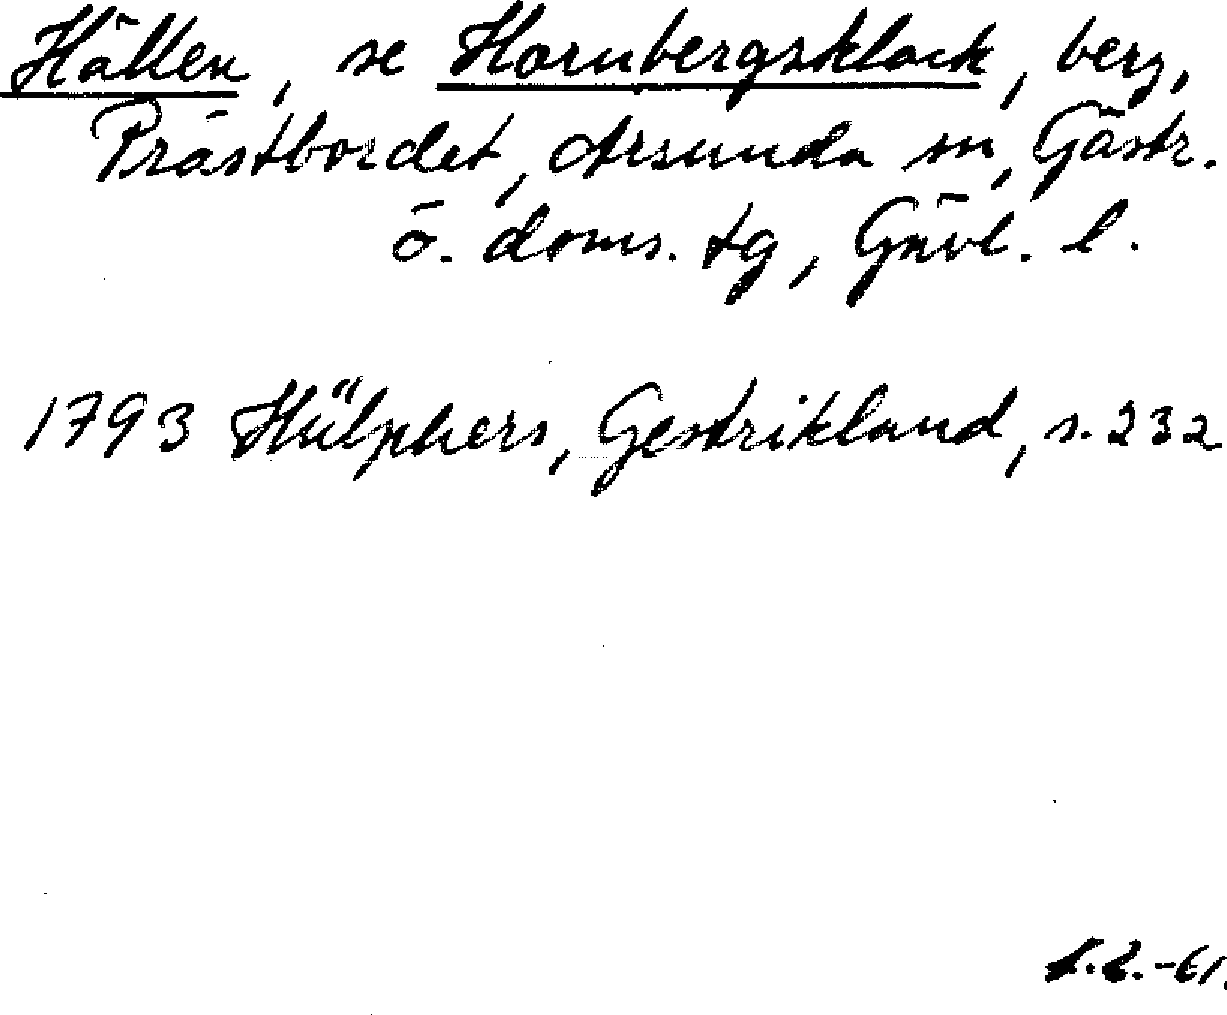 Hällen, se Hornbergsklack, berg,
Prästbordet, Årsunda sn, Gästr.
ö. doms. tg, Gävl. l.
1793 Hülphers, Gestrikland, s. 232